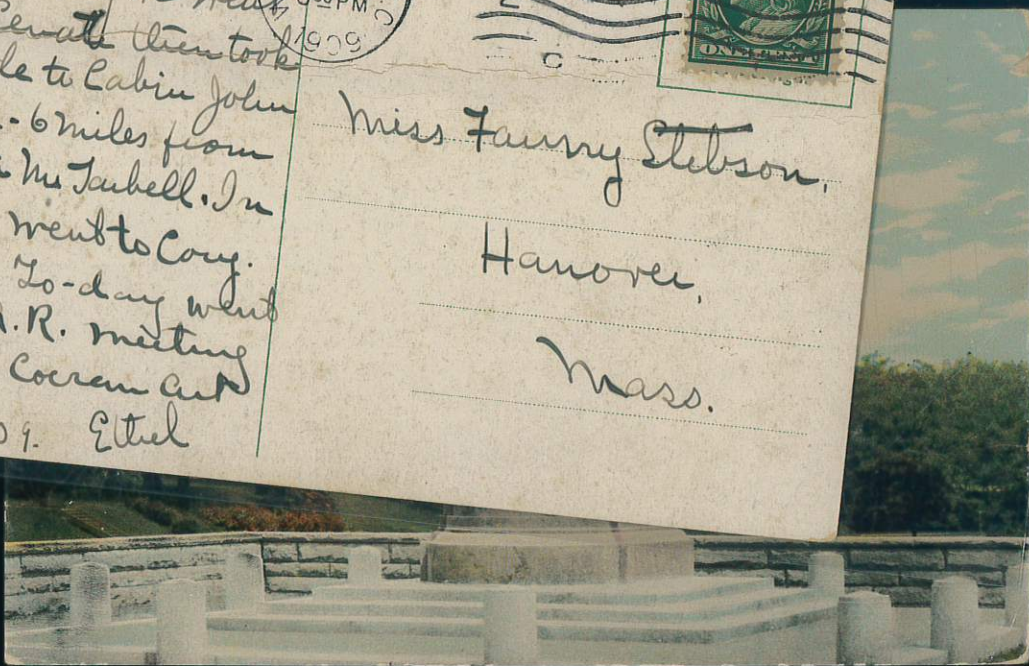 Senate then took
le to Cabin John
- 6 miles from
Mr Tarbell. In
went to Cong.
To-day went
R. R. meeting
Cocran Art
09. Ethel
1909
ONE CENT
C
Miss Fanny Stetson,
Hanover,
Mass.